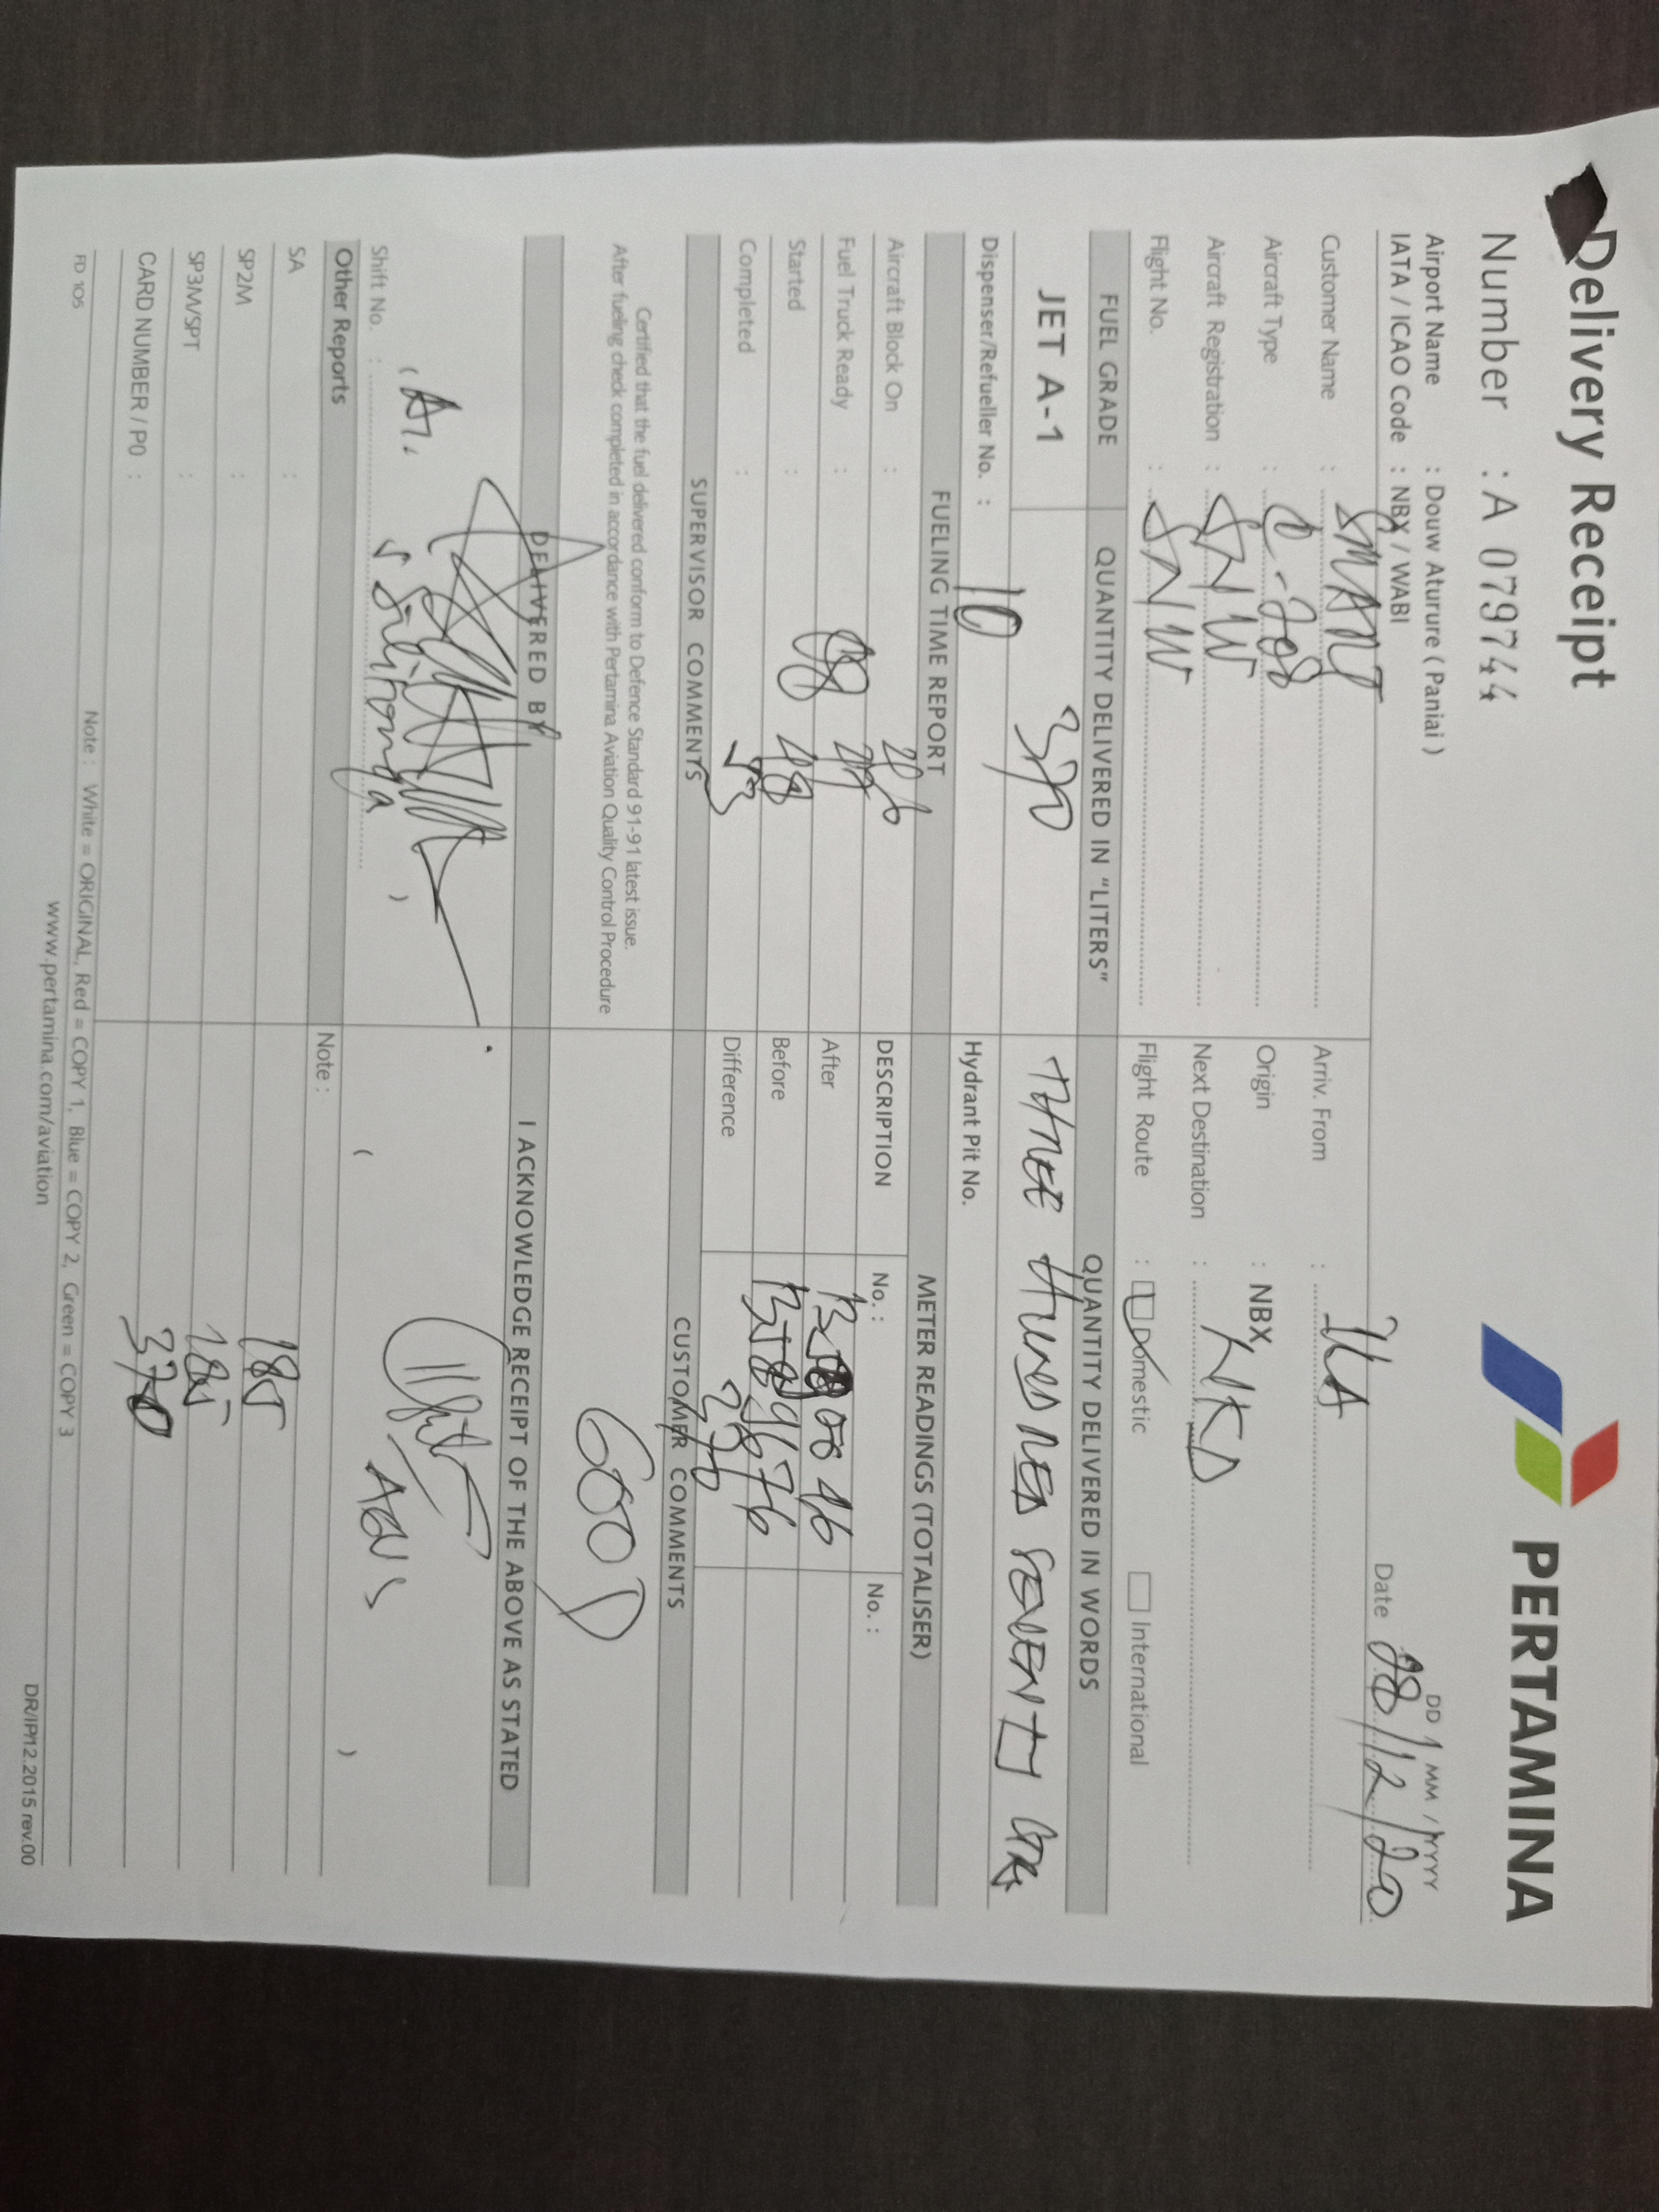 Delivery Receipt
PERTAMINA
Number : A 079744
DD / MM / YYYY
Airport Name : Douw Aturure ( Paniai )
IATA / ICAO Code : NBX / WABI
Date 28/12/20
Customer Name : SMART
Arriv. From :
Aircraft Type : C-208
Origin : NBX
Aircraft Registration : SNW
Next Destination :
Flight No. : SNW
Flight Route : Domestic International
FUEL GRADE QUANTITY DELIVERED IN "LITERS" QUANTITY DELIVERED IN WORDS
JET A-1 370 THREE HUNDRED SEVENTY
Dispenser/Refueller No. : 10
Hydrant Pit No.
FUELING TIME REPORT METER READINGS (TOTALISER)
Aircraft Block On :
DESCRIPTION No. : No. :
Fuel Truck Ready : 08
After
Started : 08 48
Before
Completed :
Difference 370
SUPERVISOR COMMENTS CUSTOMER COMMENTS
Certified that the fuel delivered conform to Defence Standard 91-91 latest issue.
After fueling check completed in accordance with Pertamina Aviation Quality Control Procedure
GOOD
DELIVERED BY I ACKNOWLEDGE RECEIPT OF THE ABOVE AS STATED
Shift No. : Silitonga )
( )
Other Reports Note :
SA : 185
SP2M : 185
SP3M/SPT : 370
CARD NUMBER / PO :
FD 105
Note : White = ORIGINAL, Red = COPY 1, Blue = COPY 2, Green = COPY 3
www.pertamina.com/aviation
DR/IP/12.2015 rev.00